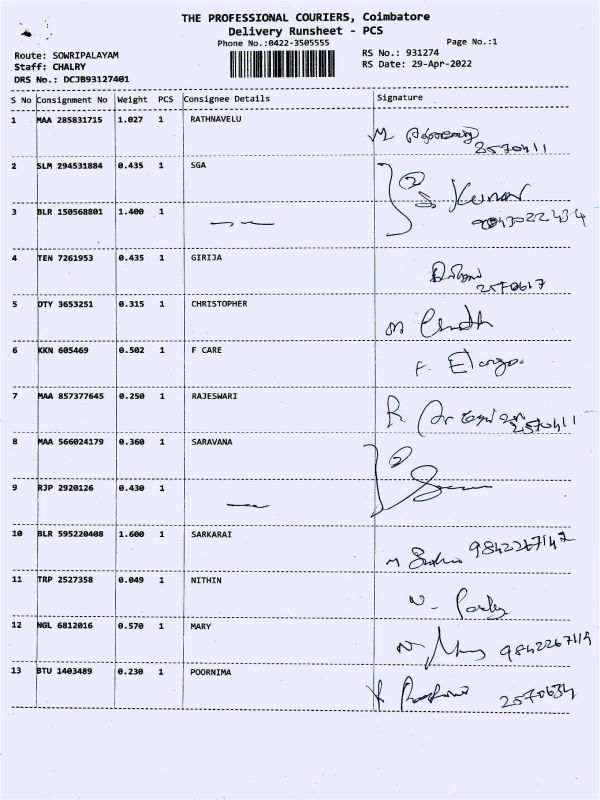 THE PROFESSIONAL COURIERS, Coimbatore
Delivery Runsheet - PCS
Phone No.:0422-3505555
Page No.:1
Route: SOWRIPALAYAM
RS No.: 931274
Staff: CHALRY
RS Date: 29-Apr-2022
DRS No.: DCJB93127401
S No Consignment No Weight PCS Consignee Details Signature
1 MAA 285831715 1.027 1 RATHNAVELU
2570411
2 SLM 294531884 0.435 1 SGA
② Kumar
3 BLR 150568801 1.400 1
4 TEN 7261953 0.435 1 GIRIJA
2570617
5 DTY 3653251 0.315 1 CHRISTOPHER
6 KKN 605469 0.502 1 F CARE
F. Elango
7 MAA 857377645 0.250 1 RAJESWARI
R 2570411
8 MAA 566024179 0.360 1 SARAVANA
②
9 RJP 2920126 0.430 1
10 BLR 595220408 1.600 1 SARKARAI
9842267147
11 TRP 2527358 0.049 1 NITHIN
N-
12 NGL 6812016 0.570 1 MARY
9842267114
13 BTU 1403489 0.230 1 POORNIMA
2570634